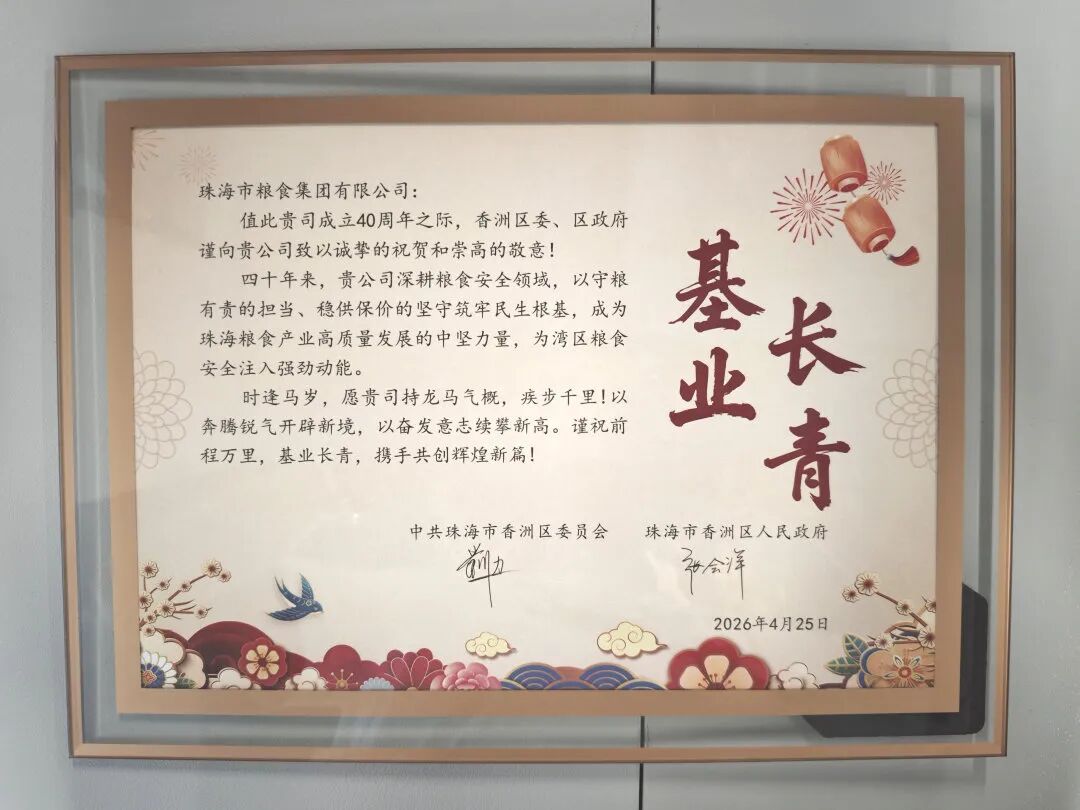 珠海市粮食集团有限公司：
值此贵司成立40周年之际，香洲区委、区政府
谨向贵公司致以诚挚的祝贺和崇高的敬意！
四十年来，贵公司深耕粮食安全领域，以守粮
有责的担当、稳供保价的坚守筑牢民生根基，成为
珠海粮食产业高质量发展的中坚力量，为湾区粮食
安全注入强劲动能。
时逢马岁，愿贵司持龙马气概，疾步千里！以
奔腾锐气开辟新境，以奋发意志续攀新高。谨祝前
程万里，基业长青，携手共创辉煌新篇！
基业
长青
中共珠海市香洲区委员会
珠海市香洲区人民政府
张会洋
2026年4月25日